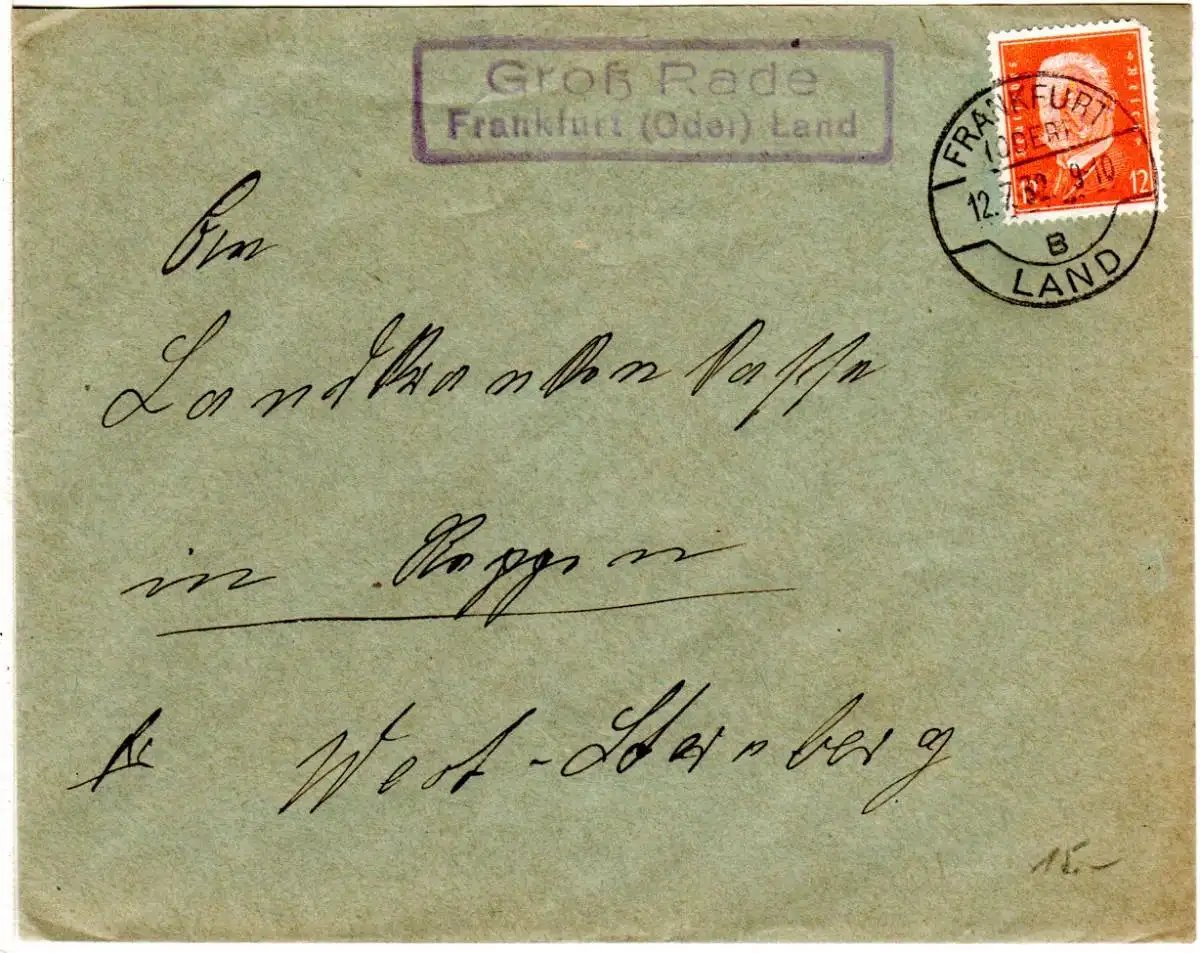 Groß Rade
Frankfurt (Oder) Land
DEUTSCHES REICH
12
FRANKFURT
(ODER)
12.7.32. 9-10
B
LAND
An
Landkrankenkasse
in Reppen
Kr West-Sternberg
15.-